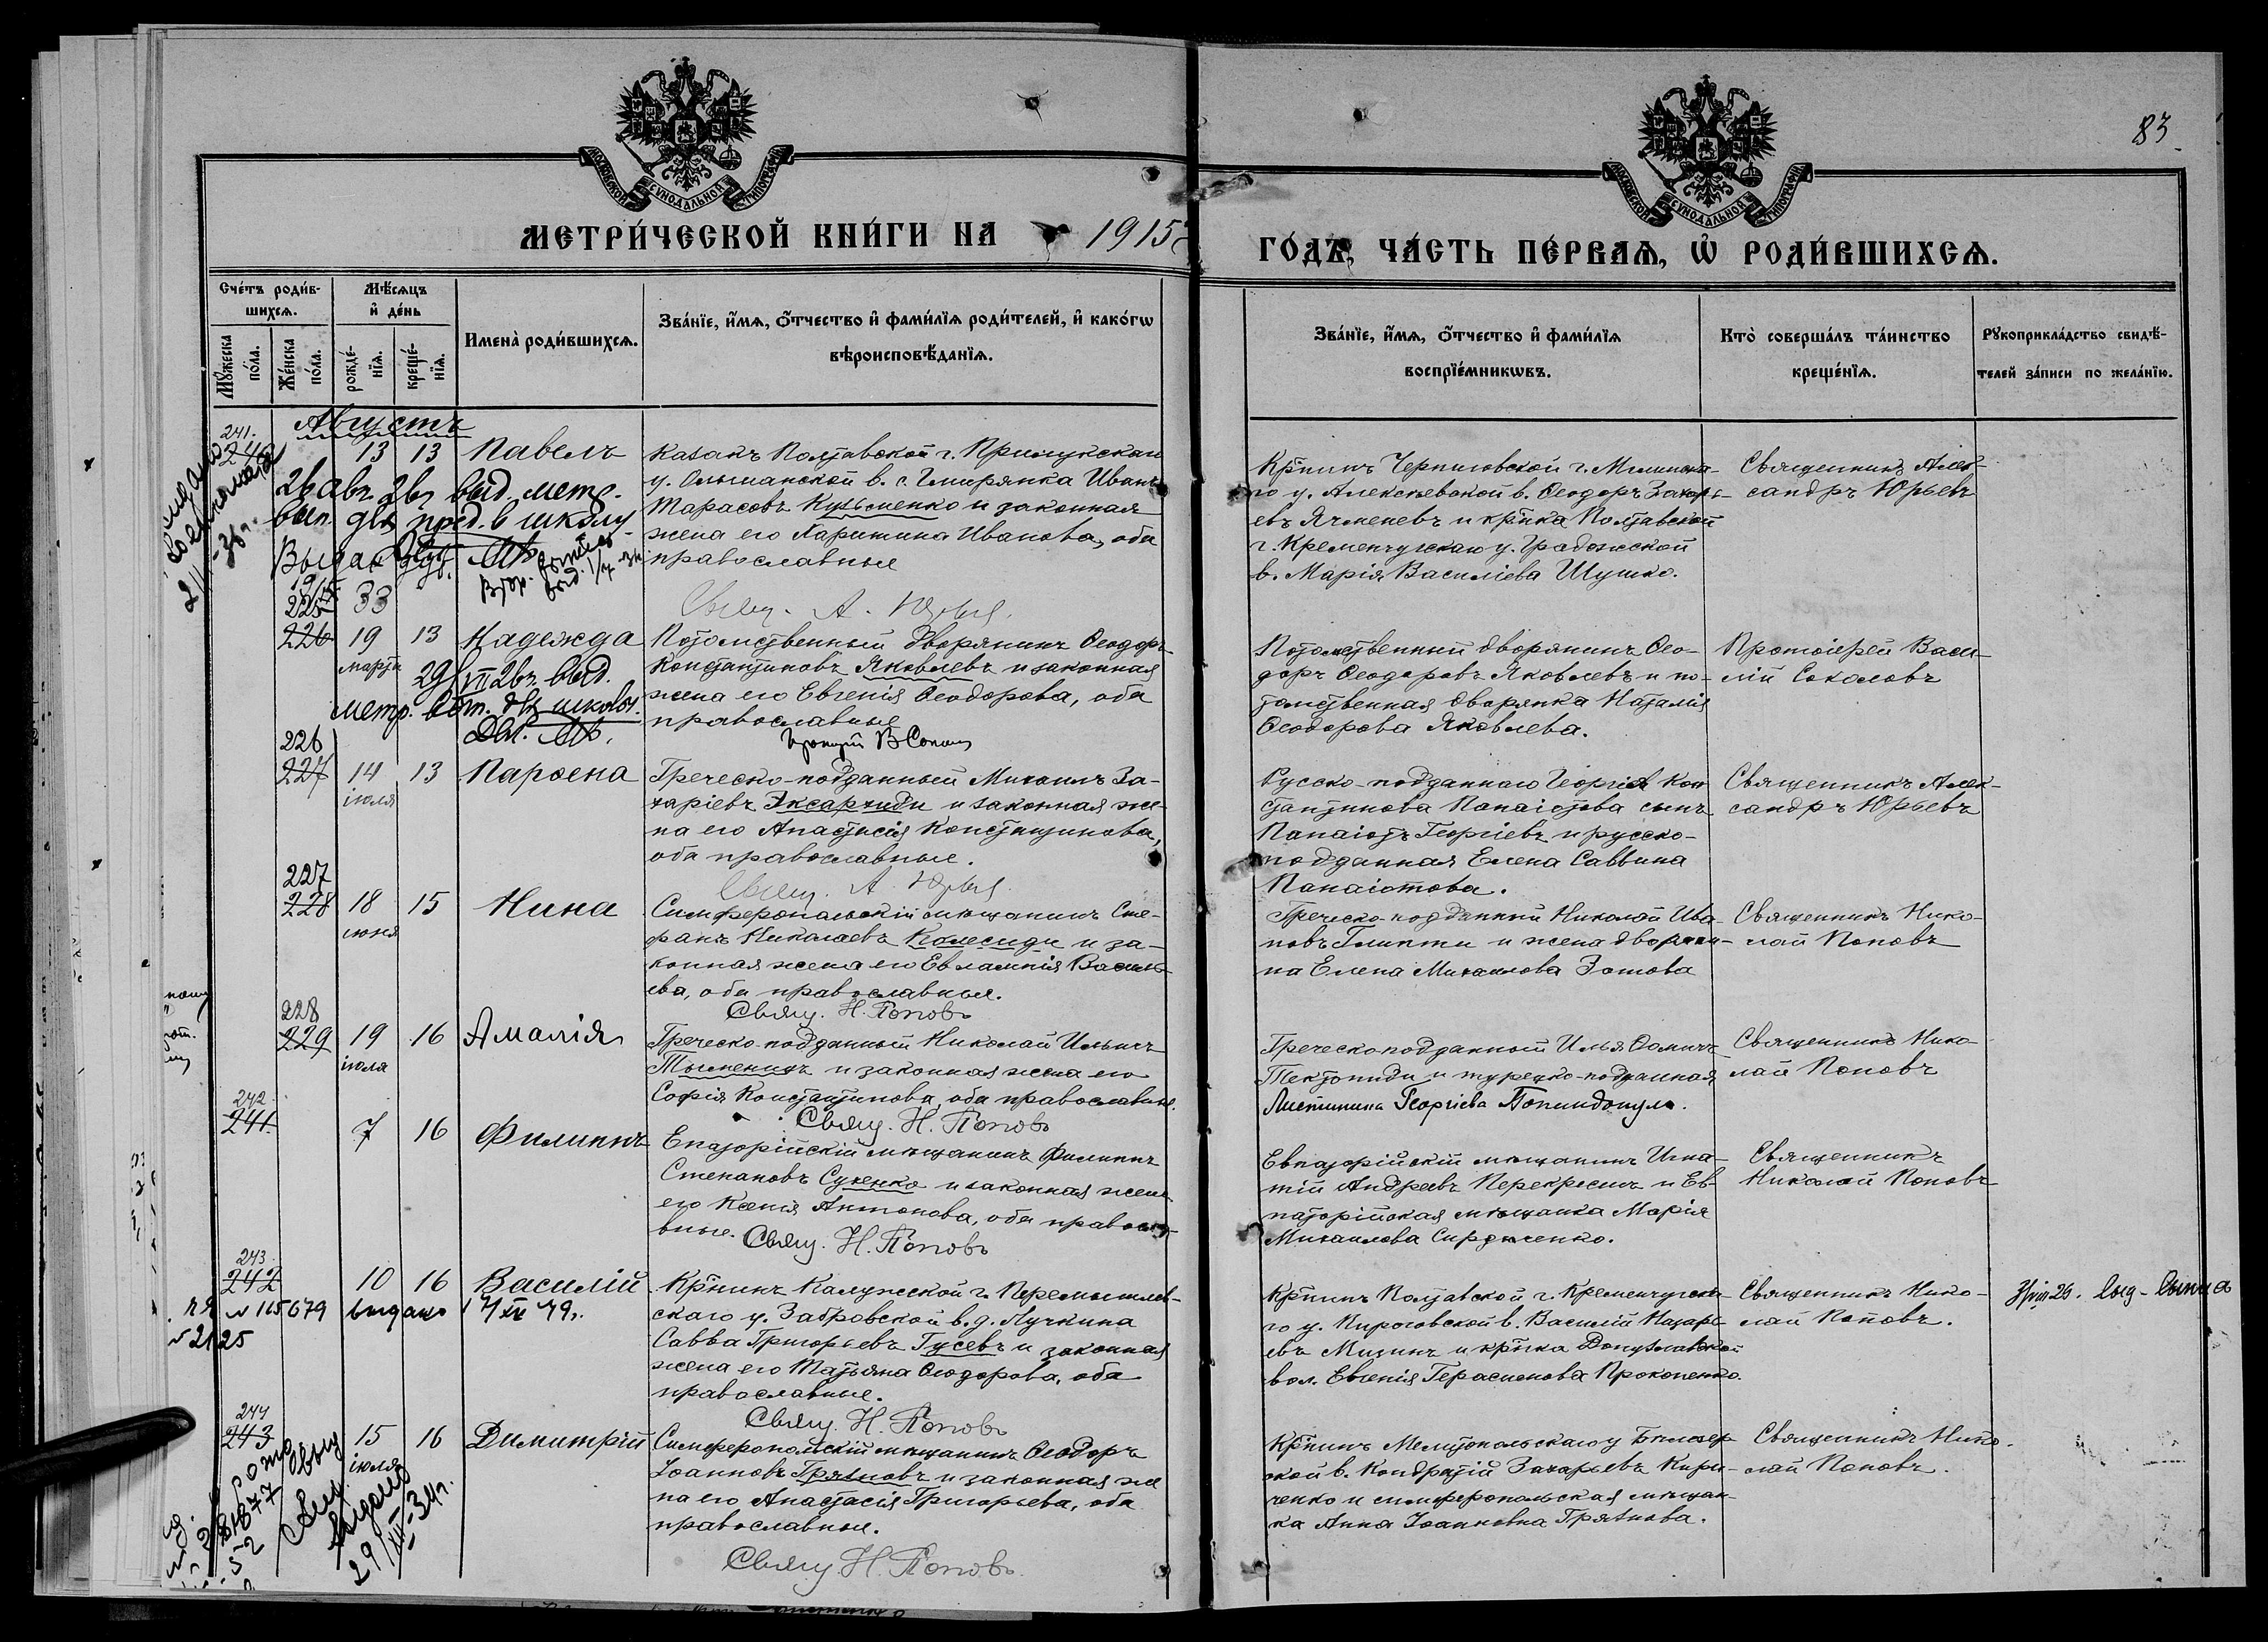 83
МОСКОВСКОЙ СѴНОДАЛЬНОЙ ТИПОГРАФІИ
МОСКОВСКОЙ СѴНОДАЛЬНОЙ ТИПОГРАФІИ
МЕТРИ́ЧЕСКОЙ КНИ́ГИ НА 1915
ГО́ДЪ, ЧА́СТЬ ПЕ́РВАѦ, Ѡ҆ РОДИ́ВШИХСѦ.
Сче́тъ роди́в-
шихсѧ.
Мꙋ́жеска по́ла.
Же́нска по́ла.
Мѣ́сѧцъ
и҆ де́нь
рожде́-
нїѧ.
креще́-
нїѧ.
Имена̀ роди́вшихсѧ.
Зва́нїе, и҆́мѧ, ѻ҆́тчество и҆ фами́лїѧ роди́телей, и҆ како́гѡ
вѣроисповѣ́данїѧ.
Зва́нїе, и҆́мѧ, ѻ҆́тчество и҆ фами́лїѧ
воспрїе́мникѡвъ.
Кто̀ соверша́лъ та́инство
креще́нїѧ.
Рꙋкоприкла́дство свидѣ́-
телей за́писи по жела́нїю.
Августъ
241.
240 13 13 Павелъ
Казакъ Полтавской г. Прилукскаго
у. Ольшанской в. с. Гмирянка Иванъ
Тарасовъ Кузьменко и законная
жена его Харитина Иванова, оба
православные
Свящ. А. Юрьев
26 авг. выд. метр.
вып. для пред. в школу
Крнинъ Черниговской г.
го у. Алексѣевской в. Ѳеодоръ Захарь-
евъ Ячменевъ и кр҃нка Полтавской
г. Кременчугскаго у. Градижской
в. Марія Василіева Шушко.
Священникъ Алек-
сандръ Юрьевъ
225
226 19 13 Надежда
марта
Потомственный дворянинъ Ѳеодоръ
Константиновъ Яковлевъ и законная
жена его Евгенія Ѳеодорова, оба
православные
29/VII 26г. выд.
метр. вып. для школы.
Потомственный дворянинъ Ѳео-
доръ Ѳеодоровъ Яковлевъ и по-
томственная дворянка Наталія
Ѳеодорова Яковлева.
Протоіерей Васи-
лій Соколовъ
226
227 14 13 Парѳена
іюля
Греческо-подданный Михаилъ За-
харіевъ Эксархиди и законная же-
на его Анастасія Константинова,
оба православные.
Свящ. А. Юрьев
Русско-подданнаго Георгія Кон
стантинова Панаіотова сынъ
Панаіотъ Георгіевъ и русско-
подданная Елена Саввина
Панаіотова.
Священникъ Алек-
сандръ Юрьевъ
227
228 18 15 Нина
іюня
Симферопольскій мѣщанинъ Сте-
фанъ Николаевъ Колесиди и за-
конная жена его Евлампія Василь-
ева, оба православные.
Свящ. Н. Поповъ
Греческо-подданный Николай Ива-
новъ и жена дворяни-
на Елена Михаилова Зотова
Священникъ Нико-
лай Поповъ
228
229 19 16 Амалія
іюля
Греческо-подданный Николай Ильичъ
и законная жена его
Софія Константинова, оба православные.
Свящ. Н. Поповъ
Греческо-подданный Илья Ѳомичъ
Тектониди и турецко-подданная
Георгіева Попандопуло.
Священникъ Нико
лай Поповъ
242
241. 7 16 Филиппъ
Евпаторійскій мѣщанинъ Филиппъ
Степановъ Сукенко и законная жена
его Ксенія Антонова, оба правосла-
вные.
Свящ. Н. Поповъ
Евпаторійскій мѣщанинъ Игна-
тій Андреевъ Перекрестъ и Ев-
паторійская мѣщанка Марія
Михаилова Сердюченко.
Священникъ
Николай Поповъ
243
242 10 16 Василій
№ 115679 выдано 17 XII 49г.
№ 2125
Кр҃нинъ Калужской г. Перемышлев-
скаго у. Забровской в. д. Лучкина
Савва Григорьевъ Гусевъ и законная
жена его Татьяна Ѳеодорова, оба
православные.
Свящ. Н. Поповъ
Кр҃нинъ Полтавской г. Кременчугска-
го у. Пироговской в. Василій Назарь
евъ Мизинъ и кр҃нка Донузлавской
вол. Евгенія Герасимова Прокопенко.
Священникъ Нико-
лай Поповъ.
244
243 15 16 Димитрій
іюля
Симферопольскій мѣщанинъ Ѳеодоръ
Іоанновъ Грязновъ и законная же
на его Анастасія Григорьева, оба
православные.
Свящ. Н. Поповъ
29/III-34г.
Кр҃нинъ Мелитопольскаго у. Бѣлозер
ской в. Кондратій Захарьевъ Кири-
ченко и симферопольская мѣщан-
ка Анна Іоанновна Грязнова.
Священникъ Нико-
лай Поповъ.